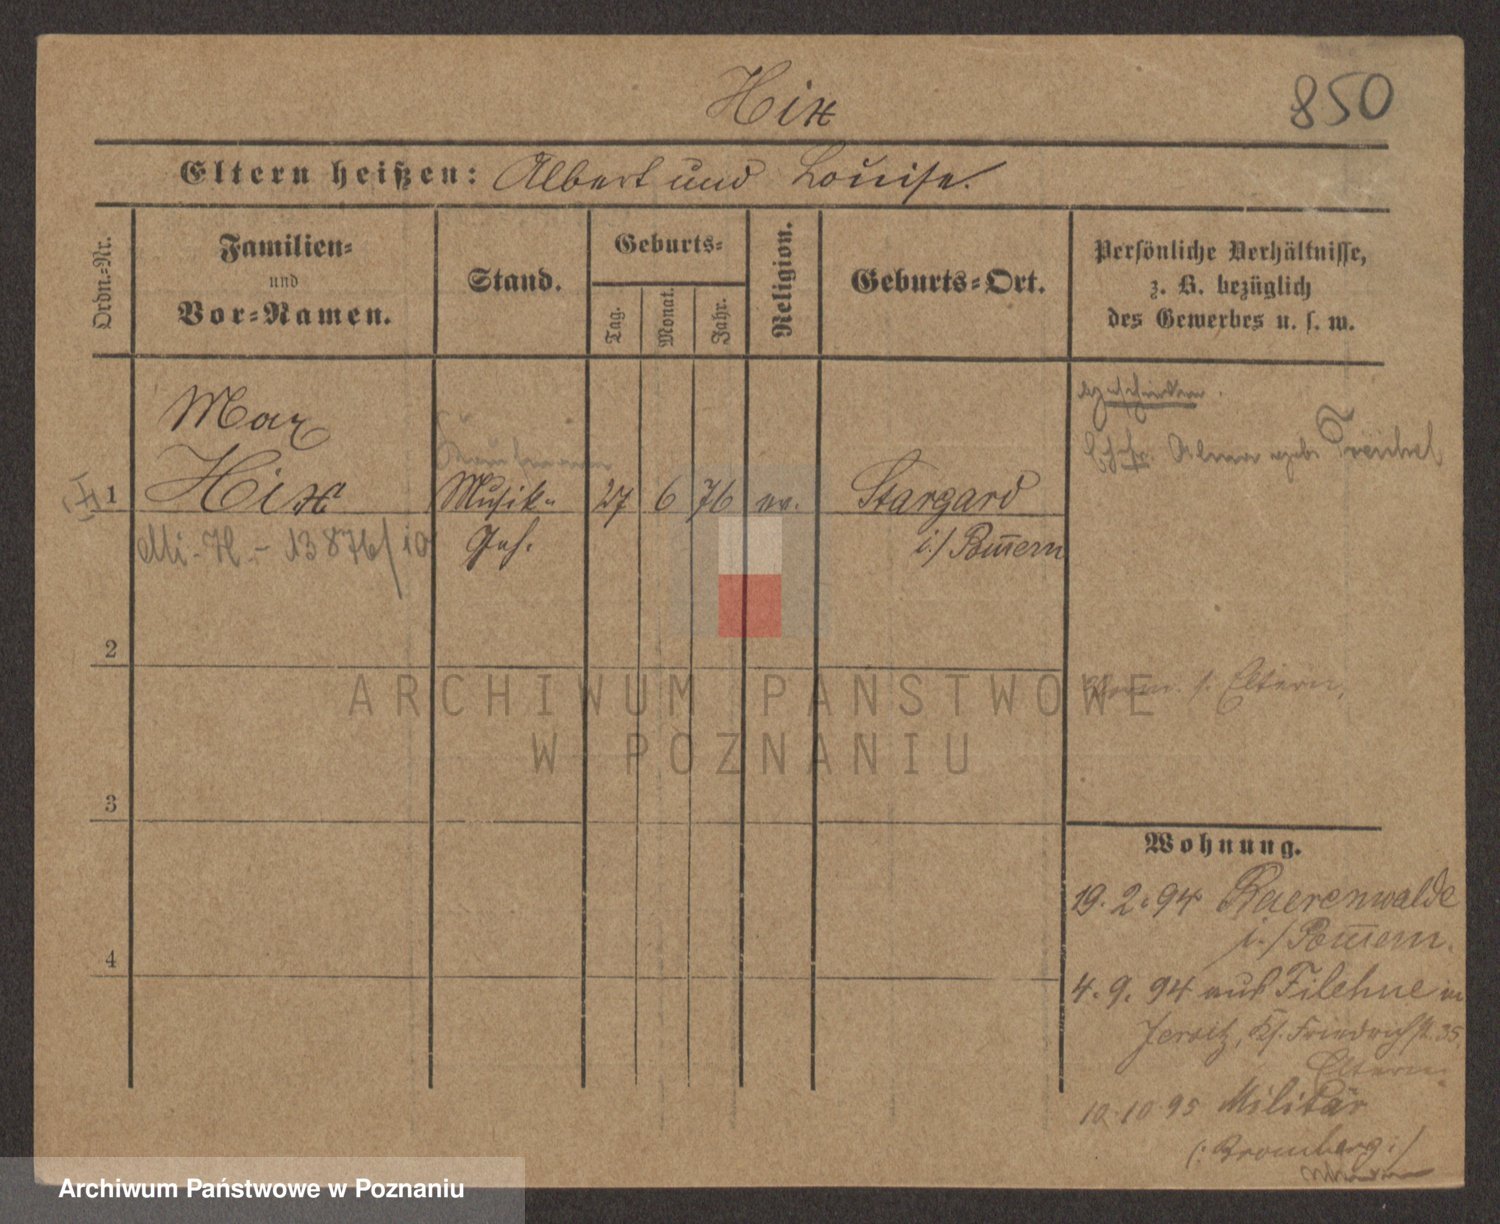 Hix
850
Eltern heißen: Albert und Louise.
Ordn.-Nr.
Familien-
und
Vor-Namen.
Stand.
Geburts-
Tag.
Monat.
Jahr.
Religion.
Geburts-Ort.
Persönliche Verhältnisse,
z. B. bezüglich
des Gewerbes u. s. w.
Max
Hix
1
Musik-
Geh.
27
6
76
ev.
Stargard
i./Pom̅ern
Mi-H.- 13876/10
Treichel
2
s. Eltern,
3
4
Wohnung.
19.2.94 Baerenwalde
i./Pom̅ern.
4.9.94 aus Filehne in
Jersitz, Ks. Friedrichst. 35
Eltern.
10.10.95 Militär
(:Bromberg:)
ARCHIWUM PAŃSTWOWE
W POZNANIU
Archiwum Państwowe w Poznaniu